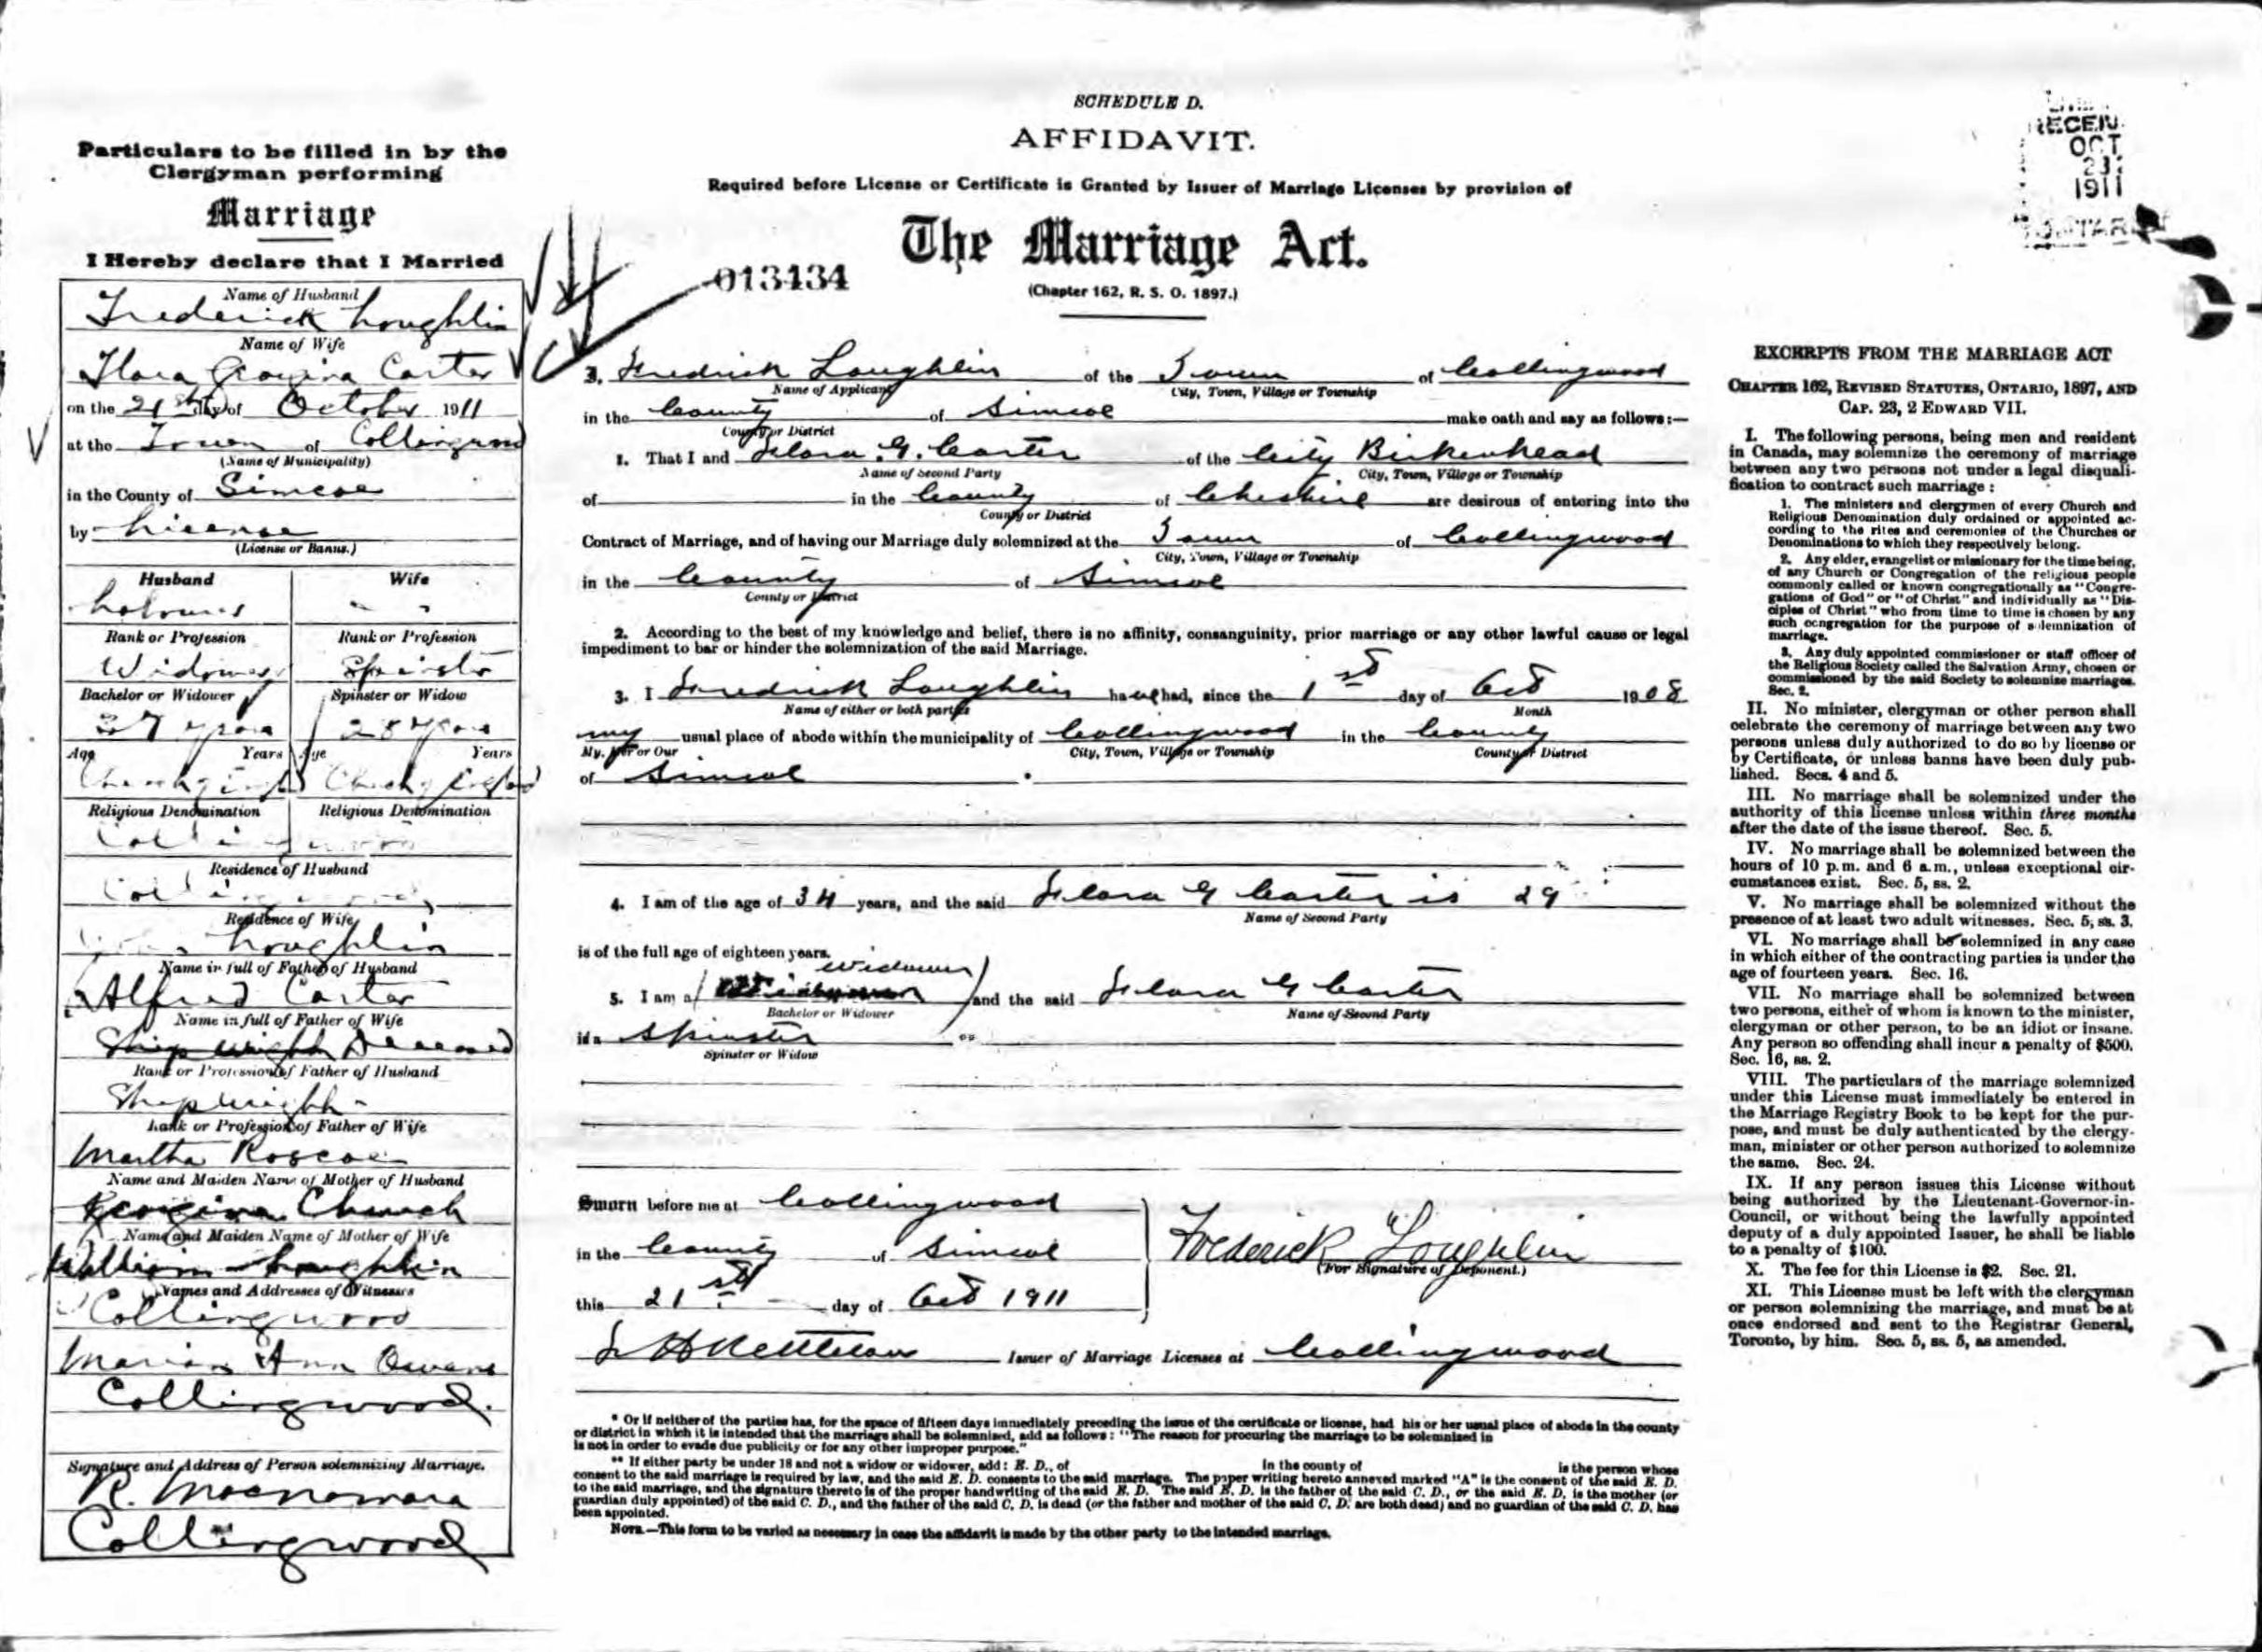 Particulars to be filled in by the
Clergyman performing
Marriage
I Hereby declare that I Married
Name of Husband
Frederick Loughlin
Name of Wife
Flora Georgina Carter
on the 21st day of October 1911
at the Town of Collingwood
(Name of Municipality)
in the County of Simcoe
by License
(License or Banns.)
Husband Wife
Labourer " "
Rank or Profession Rank or Profession
Widower Spinster
Bachelor or Widower Spinster or Widow
years 28 years
Age Years Age Years
Church of England Church of England
Religious Denomination Religious Denomination
Collingwood
Residence of Husband
Collingwood
Residence of Wife
Loughlin
Name in full of Father of Husband
Alfred Carter
Name in full of Father of Wife
Ship wright Deceased
Rank or Profession of Father of Husband
Shipwright
Rank or Profession of Father of Wife
Martha Roscoe
Name and Maiden Name of Mother of Husband
Georgina Church
Name and Maiden Name of Mother of Wife
William Loughlin
Names and Addresses of Witnesses
Collingwood
Marian Ann Owens
Collingwood.
Signature and Address of Person solemnizing Marriage.
R. Macnamara
Collingwood
SCHEDULE D.
AFFIDAVIT.
Required before License or Certificate is Granted by Issuer of Marriage Licenses by provision of
The Marriage Act.
013434
(Chapter 162, R. S. O. 1897.)
I, Fredrick Loughlin of the Town of Collingwood
Name of Applicant City, Town, Village or Township
in the County of Simcoe make oath and say as follows:—
County or District
1. That I and Flora G. Carter of the City Birkenhead
Name of Second Party City, Town, Village or Township
of in the County of Cheshire are desirous of entering into the
County or District
Contract of Marriage, and of having our Marriage duly solemnized at the Town of Collingwood
City, Town, Village or Township
in the County of Simcoe
County or District
2. According to the best of my knowledge and belief, there is no affinity, consanguinity, prior marriage or any other lawful cause or legal
impediment to bar or hinder the solemnization of the said Marriage.
3. I Fredrick Loughlin have had, since the 1st day of Oct 1908
Name of either or both parties Month
my usual place of abode within the municipality of Collingwood in the County
My, Her or Our City, Town, Village or Township County or District
of Simcoe
4. I am of the age of 34 years, and the said Flora G Carter is 29
Name of Second Party
is of the full age of eighteen years.
widower
5. I am a and the said Flora G Carter
Bachelor or Widower Name of Second Party
is a Spinster **
Spinster or Widow
Sworn before me at Collingwood
in the County of Simcoe
this 21st day of Oct 1911
Frederick Loughlin
(For Signature of Deponent.)
Issuer of Marriage Licenses at Collingwood
* Or if neither of the parties has, for the space of fifteen days immediately preceding the issue of the certificate or license, had his or her usual place of abode in the county
or district in which it is intended that the marriage shall be solemnized, add as follows: "The reason for procuring the marriage to be solemnized in
is not in order to evade due publicity or for any other improper purpose."
** If either party be under 18 and not a widow or widower, add: E. D., of in the county of is the person whose
consent to the said marriage is required by law, and the said E. D. consents to the said marriage. The paper writing hereto annexed marked "A" is the consent of the said E. D.
to the said marriage, and the signature thereto is of the proper handwriting of the said E. D. The said E. D. is the father of the said C. D., or the said E. D. is the mother (or
guardian duly appointed) of the said C. D., and the father of the said C. D. is dead (or the father and mother of the said C. D. are both dead) and no guardian of the said C. D. has
been appointed.
NOTE.—This form to be varied as necessary in case the affidavit is made by the other party to the intended marriage.
RECEIV
OCT
23
1911
ONTAR
EXCERPTS FROM THE MARRIAGE ACT
CHAPTER 162, REVISED STATUTES, ONTARIO, 1897, AND
CAP. 23, 2 EDWARD VII.
I. The following persons, being men and resident
in Canada, may solemnize the ceremony of marriage
between any two persons not under a legal disquali-
fication to contract such marriage:
1. The ministers and clergymen of every Church and
Religious Denomination duly ordained or appointed ac-
cording to the rites and ceremonies of the Churches or
Denominations to which they respectively belong.
2. Any elder, evangelist or missionary for the time being,
of any Church or Congregation of the religious people
commonly called or known congregationally as "Congre-
gations of God" or "of Christ" and individually as "Dis-
ciples of Christ" who from time to time is chosen by any
such congregation for the purpose of solemnization of
marriage.
3. Any duly appointed commissioner or staff officer of
the Religious Society called the Salvation Army, chosen or
commissioned by the said Society to solemnize marriages.
Sec. 2.
II. No minister, clergyman or other person shall
celebrate the ceremony of marriage between any two
persons unless duly authorized to do so by license or
by Certificate, or unless banns have been duly pub-
lished. Secs. 4 and 5.
III. No marriage shall be solemnized under the
authority of this license unless within three months
after the date of the issue thereof. Sec. 5.
IV. No marriage shall be solemnized between the
hours of 10 p.m. and 6 a.m., unless exceptional cir-
cumstances exist. Sec. 5, ss. 2.
V. No marriage shall be solemnized without the
presence of at least two adult witnesses. Sec. 5, ss. 3.
VI. No marriage shall be solemnized in any case
in which either of the contracting parties is under the
age of fourteen years. Sec. 16.
VII. No marriage shall be solemnized between
two persons, either of whom is known to the minister,
clergyman or other person, to be an idiot or insane.
Any person so offending shall incur a penalty of $500.
Sec. 16, ss. 2.
VIII. The particulars of the marriage solemnized
under this License must immediately be entered in
the Marriage Registry Book to be kept for the pur-
pose, and must be duly authenticated by the clergy-
man, minister or other person authorized to solemnize
the same. Sec. 24.
IX. If any person issues this License without
being authorized by the Lieutenant-Governor-in-
Council, or without being the lawfully appointed
deputy of a duly appointed Issuer, he shall be liable
to a penalty of $100.
X. The fee for this License is $2. Sec. 21.
XI. This License must be left with the clergyman
or person solemnizing the marriage, and must be at
once endorsed and sent to the Registrar General,
Toronto, by him. Sec. 5, ss. 5, as amended.